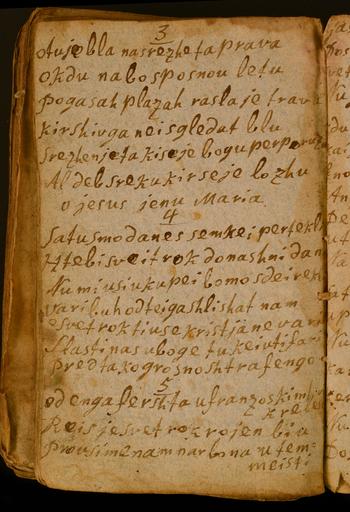 3
otu je bla nasrezheta prava
okdu nabo sposnou letu
po gasah plazah raslaje trava
kir shivga ne isgledat blu
srezhen je ta ki se je bogu perporozhu
Al deb srekukir se je lozhu
o jesus jenu Maria
4
satusmo danes semkei pertekli
Htebi sveti rok do nashni dan
Nu mi usi ukupei bomo sdei rekli
vari buh od teiga shlishat nam
sveti rok ti use kristjane vari
slasti nas uboge tukei utifari
Pred tako grosnosht rafengo
5
od enga fershta ufranzoskim
kreie
Keis je svet rok rojen bia
Prov simenam narbona utem
meisti